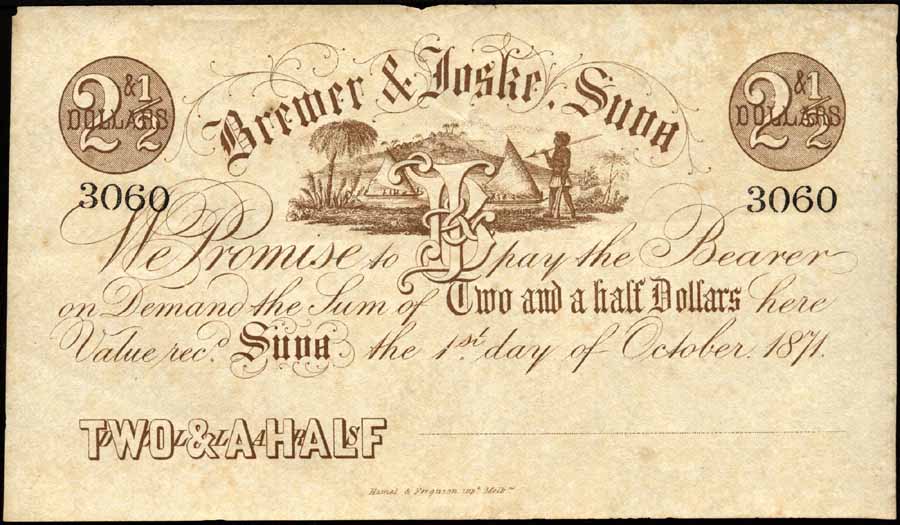 2 & ½ DOLLARS
Brewer & Joske, Suva
2 & ½ DOLLARS
3060
3060
We Promise to pay the Bearer
on Demand the Sum of Two and a half Dollars here
Value rec.d Suva the 1st. day of October. 1871.
TWO & A HALF
DOLLARS
Hamel & Ferguson impt. Melbne